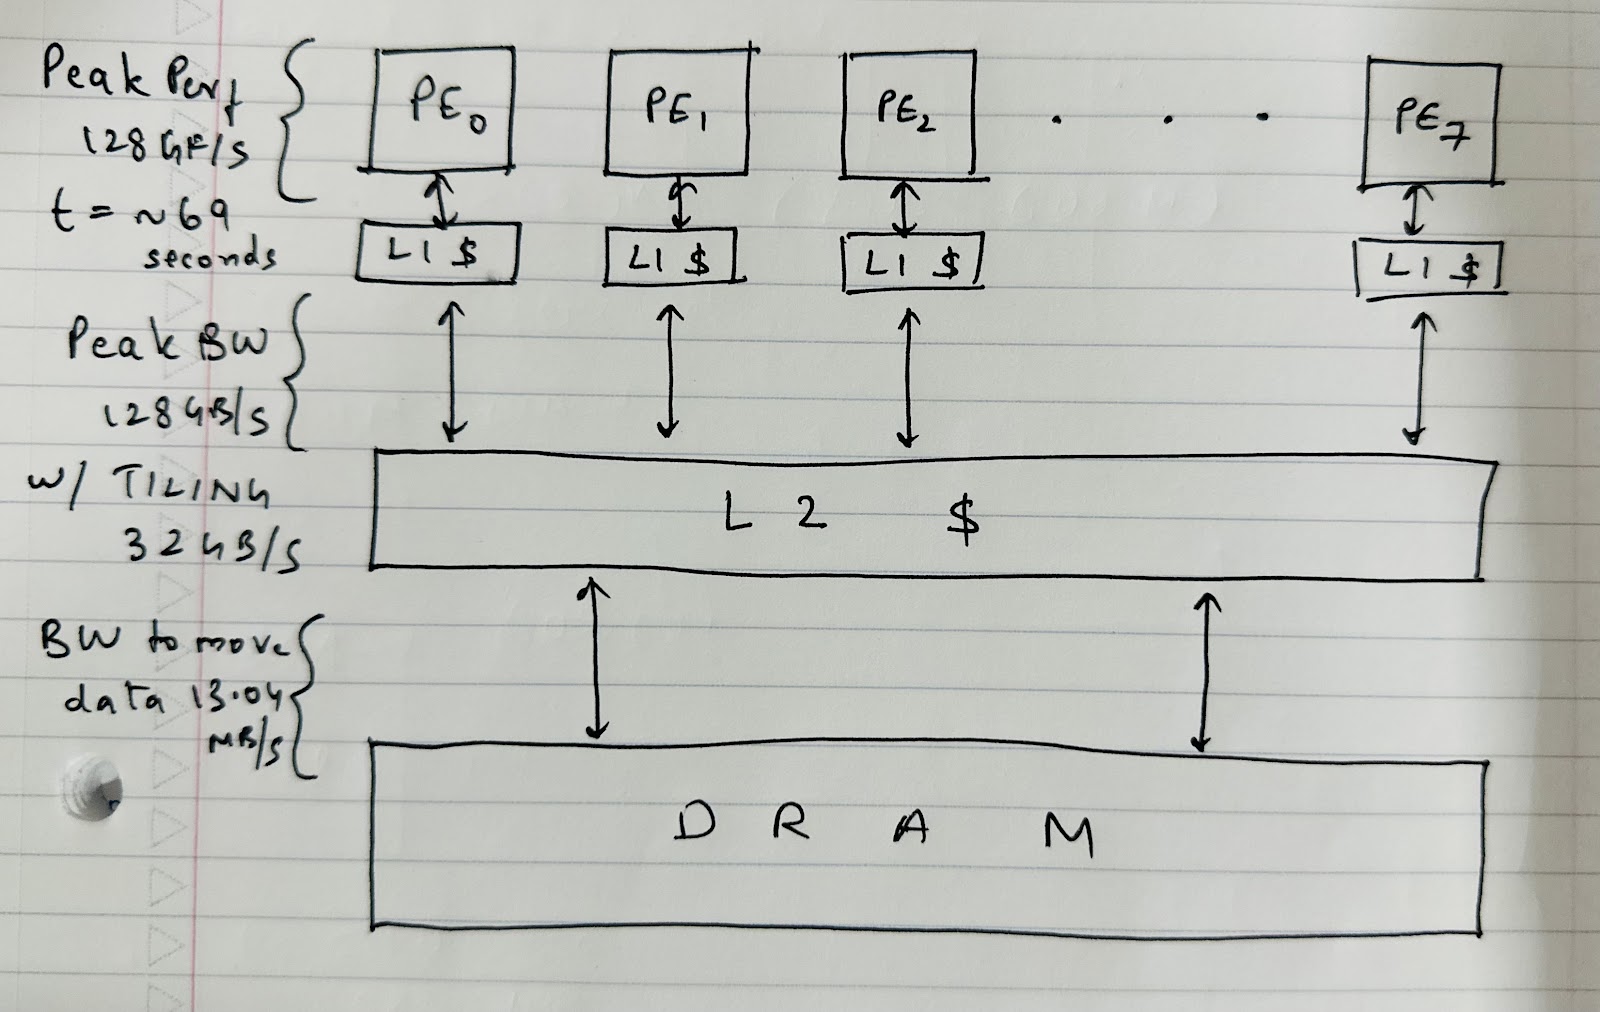 Peak Perf
128 GF/S
t = ~69
seconds
PE0
PE1
PE2
. . .
PE7
L1 $
L1 $
L1 $
L1 $
Peak BW
128 GB/S
w/ TILING
32 GB/S
L2 $
BW to move
data 13.04
MB/s
DRAM